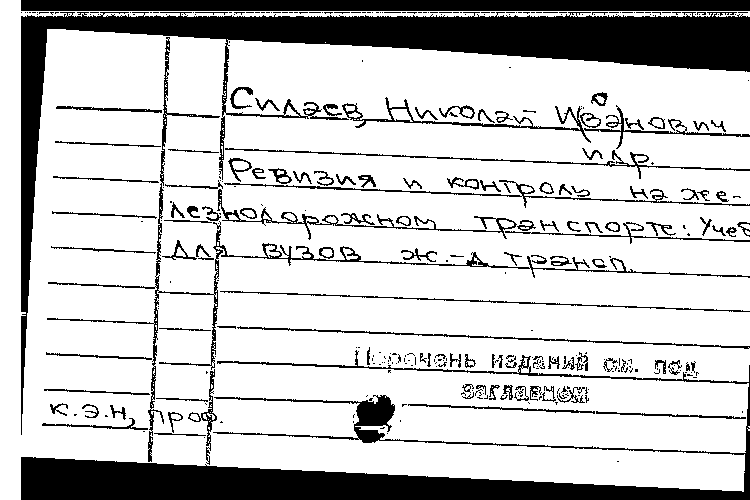 Силаев, Николай И(ва)нович
и др.
Ревизия и контроль на же-
лезнодорожном транспорте: Учеб.
для вузов ж.-д. трансп.
Перечень изданий см. под
заглавием
к.э.н., проф.